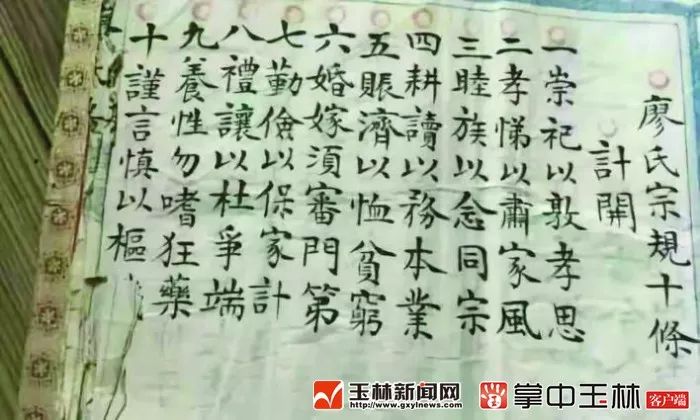 廖氏宗規十條
計開
一崇祀以敦孝思
二孝悌以肅家風
三睦族以念同宗
四耕讀以務本業
五賑濟以恤貧窮
六婚嫁須審門第
七勤儉以保家計
八禮讓以杜爭端
九養性勿嗜狂藥
十謹言慎以樞
玉林新闻网
http://www.gxylnews.com
掌中玉林
客户端